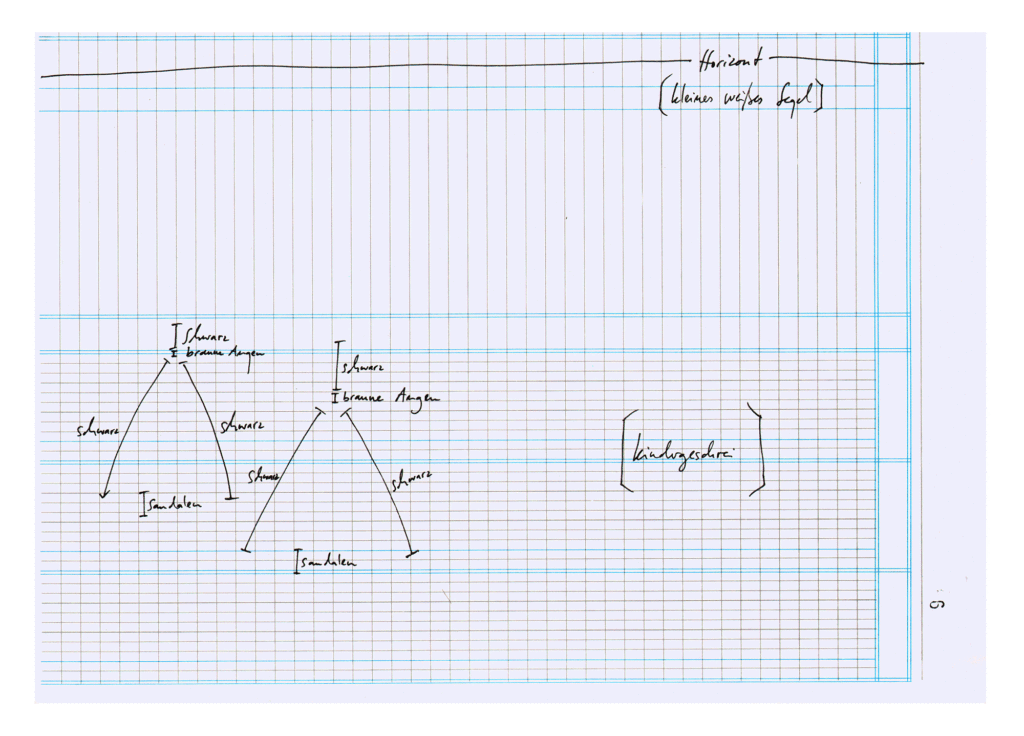 Horizont
[kleines weißes Segel]
Schwarz
braune Augen
schwarz
braune Augen
schwarz
schwarz
[Kindergeschrei]
schwarz
schwarz
Sandalen
Sandalen
6